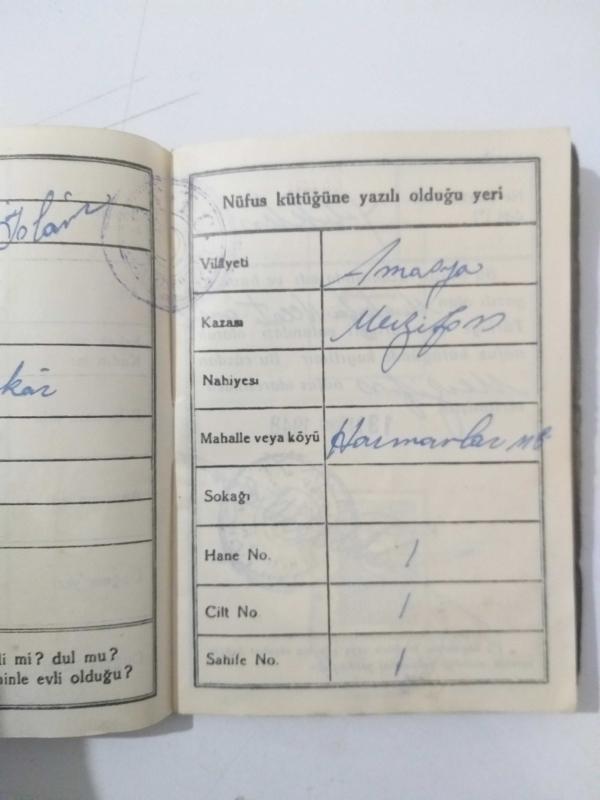 kâr
li mi? dul mu?
inle evli olduğu?
Nüfus kütüğüne yazılı olduğu yeri
Vilâyeti Amasya
Kazası Merzifon
Nahiyesi
Mahalle veya köyü Harmanlar
Sokağı
Hane No. 1
Cilt No 1
Sahife No. 1